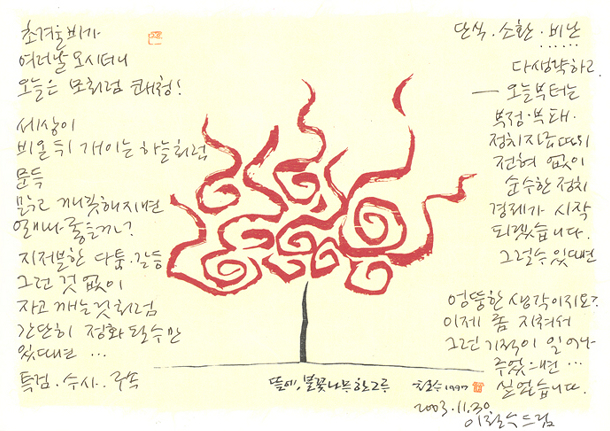 초겨울비가
여러날 오시더니
오늘은 모처럼 쾌청!
세상이
비온 뒤 개이는 하늘처럼
문득
맑고 깨끗해지면
얼마나 좋을까?
지저분한 다툼·갈등
그런 것 없이
자고 깨는 것처럼
간단히 정화될 수만
있다면 ...
특검·수사·구속
단식·소환·비난
......
다 생략하고
— 오늘부터는
부정·부패·
정치자금 따위
전혀 없이
순수한 정치
경제가 시작
되겠습니다.
그럴 수 있다면
엉뚱한 생각이지요?
이제 좀 지쳐서
그런 기적이 일어나
주었으면 ...
싶었습니다.
뜰에, 불꽃나무 한 그루
철수 1997
2003.11.30
이철수 드림